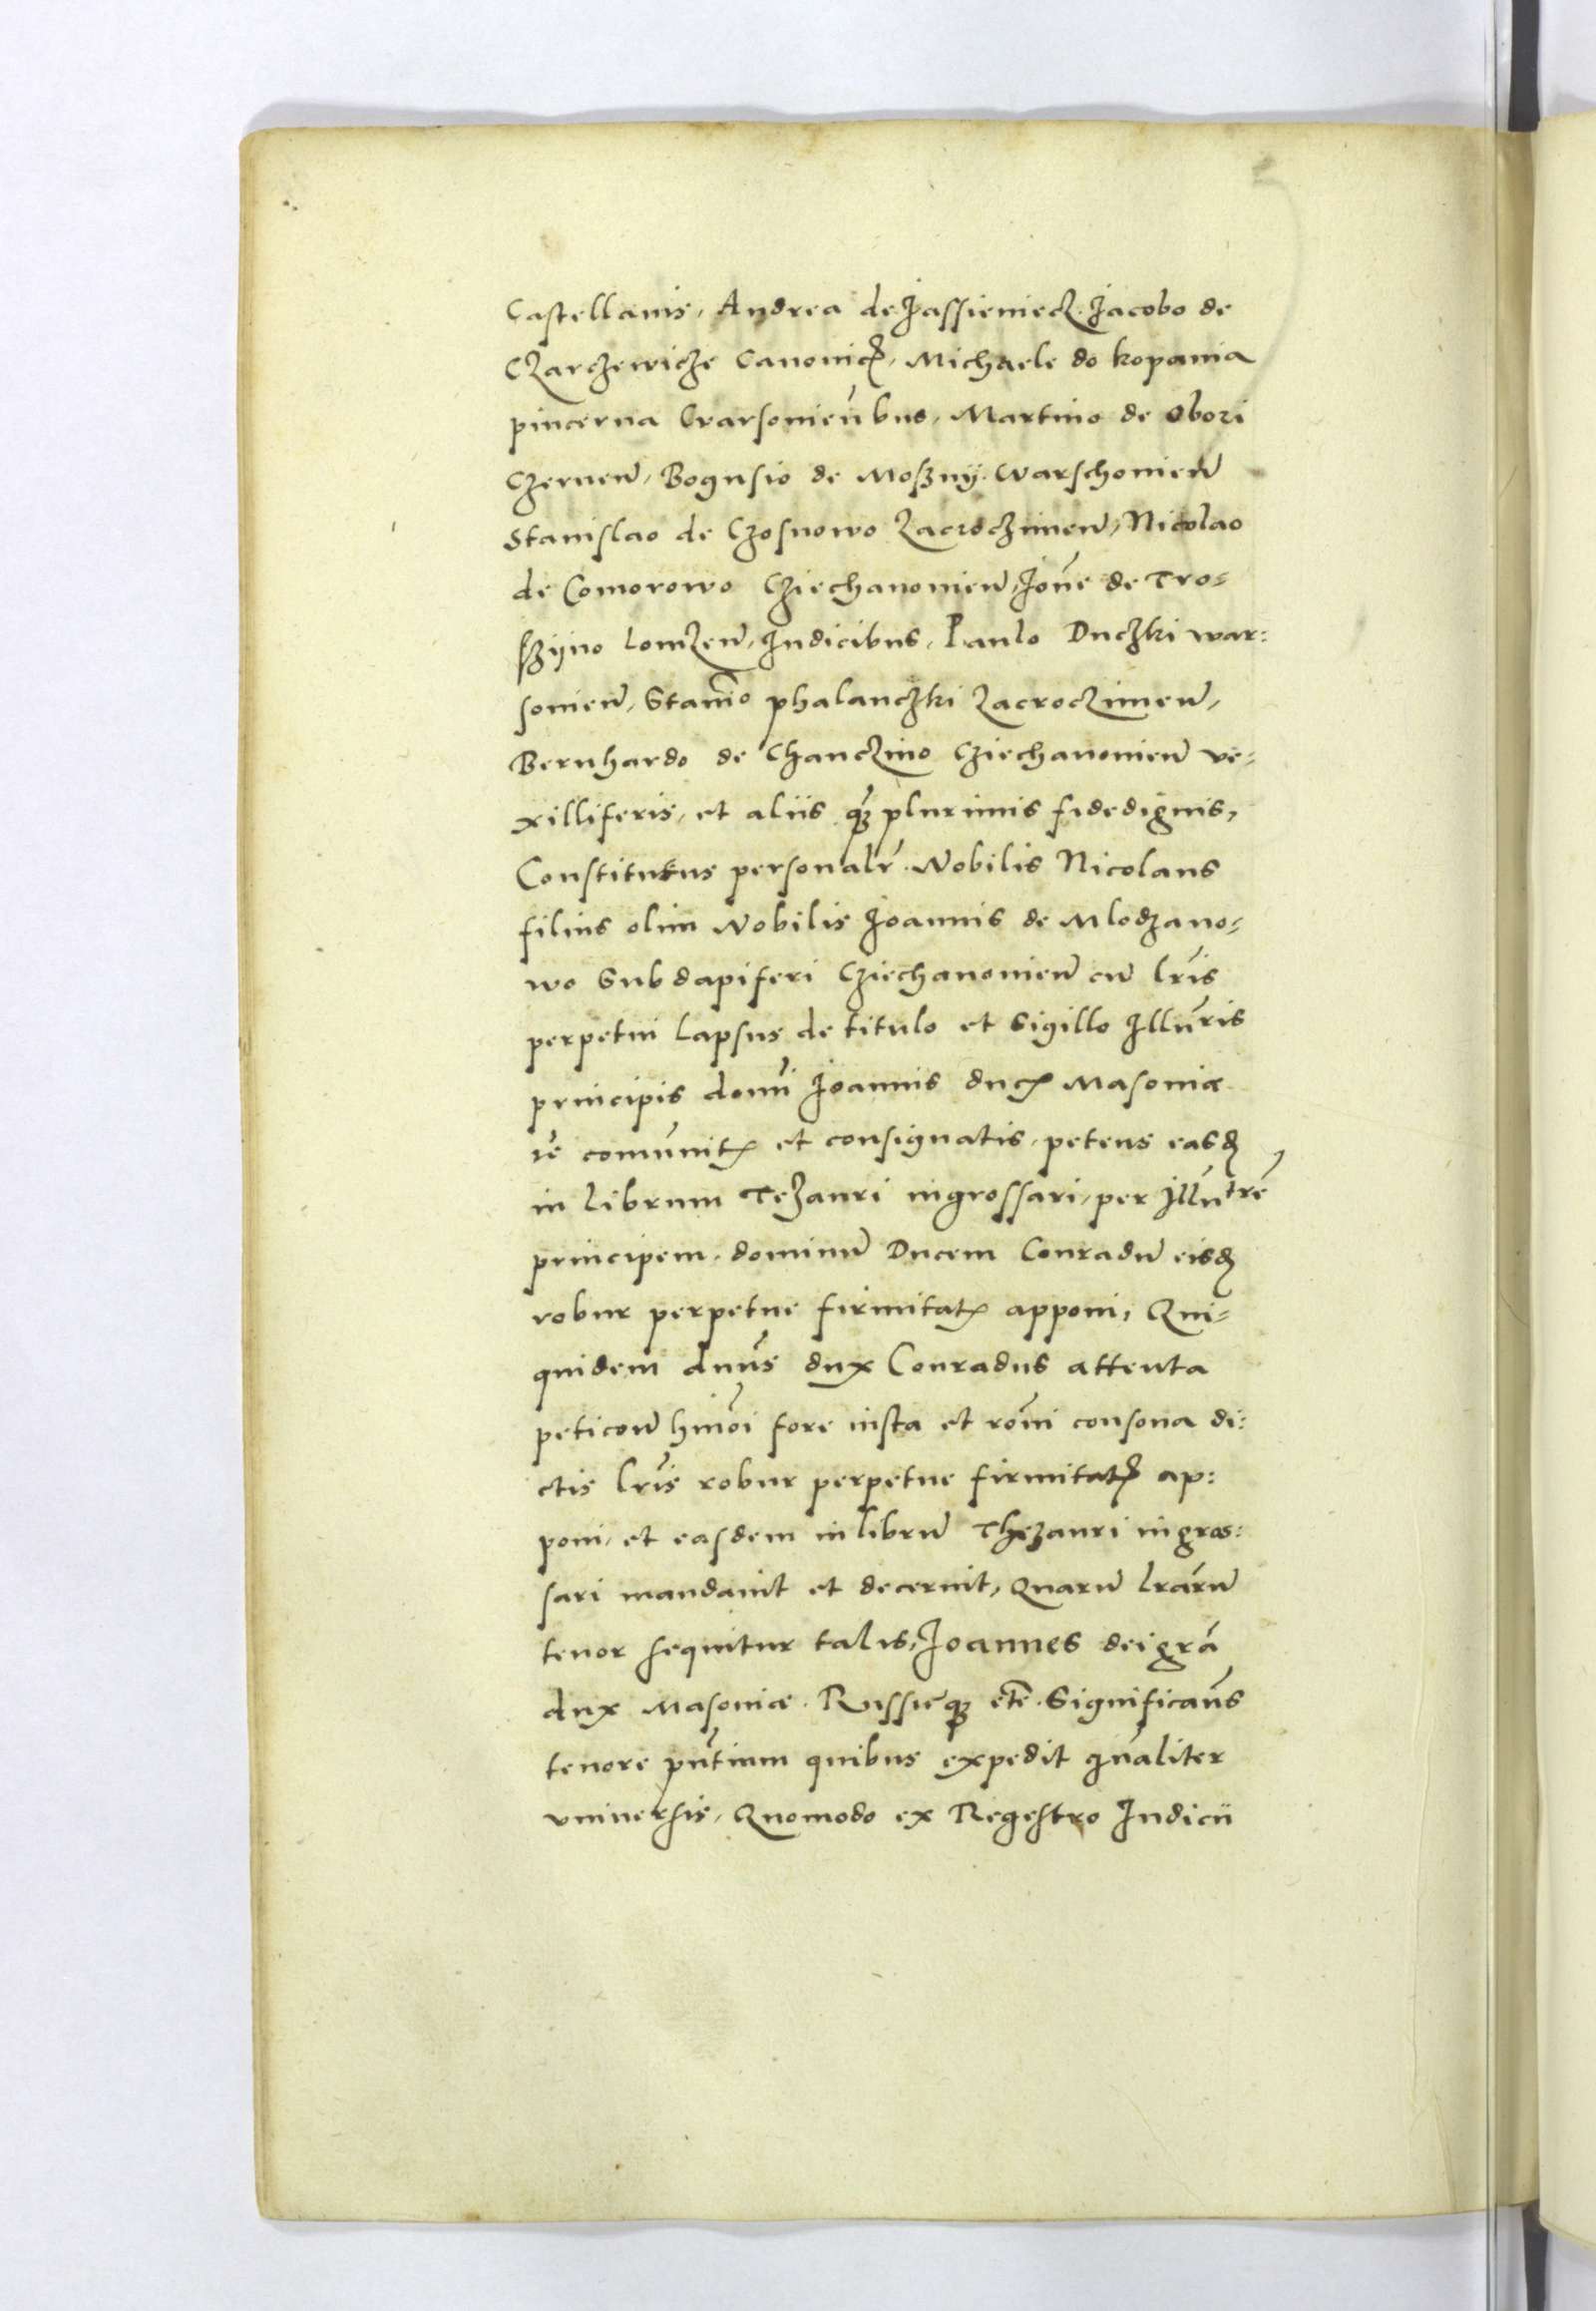 Castellanis, Andrea de Jassieniecz. Jacobo de
Czarczewicze Canonicꝭ, Michaele do kopania
pincerna Warsonien̄bus, Martino de Obori
Czernen̄, Bogusio de Moszny. Warschonien̄
Stanislao de Czosnowo Zacroczimen̄, Nicolao
de Comorowo Cziechanonien̄, Jon̄e de Tro⸗
szyno Lomzen̄, Iudicibus, Paulo Duczki war:
sonien̄, Stan̄io phalanczki Zacroczimen̄,
Bernhardo de Chanczino Cziechanonien̄ ve⸗
xilliferis, et aliis qꝫ plurimis fidedignis,
Constitutus personalr̄. Nobilis Nicolaus
filius olim Nobilis Joannis de Mlodzano⸗
wo Subdapiferi Cziechanonien̄ cū lrīs
perpetui lapsus de titulo et Sigillo Illūris
principis domī Joannis ducꝭ Masoniæ
re͞ comūnitꝭ et consignatis, petens easd̄
in librum Tezauri ingrossari, per Illūtrē
principem. dominū Ducem Conradū eisd̄
robur perpetue firmitatꝭ apponi, Qui⸗
quidem dnūs dux Conradus attenta
peticon̄ hmōi fore iusta et rōni consona di:
ctis lrīs robur perpetue firmitatꝭ ap:
poni, et easdem in librū Thezauri ingros:
sari mandauit et decernit, Quarū lrārū
tenor sequitur talis, Joannes dei grā
dux Masoniæ. Russieqꝫ etc̄. Significan̄s
tenore pn̄tium quibus expedit vn̄aliter
vniuersis, Quomodo ex Regestro Iudicii